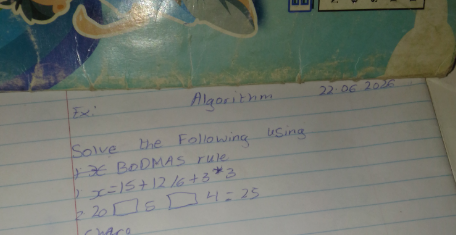 Algorithm 22.06 2026
Ex:
Solve the Following using
BODMAS rule
1 x=15+12/6+3*3
2 20 □ 5 □ 4 = 25